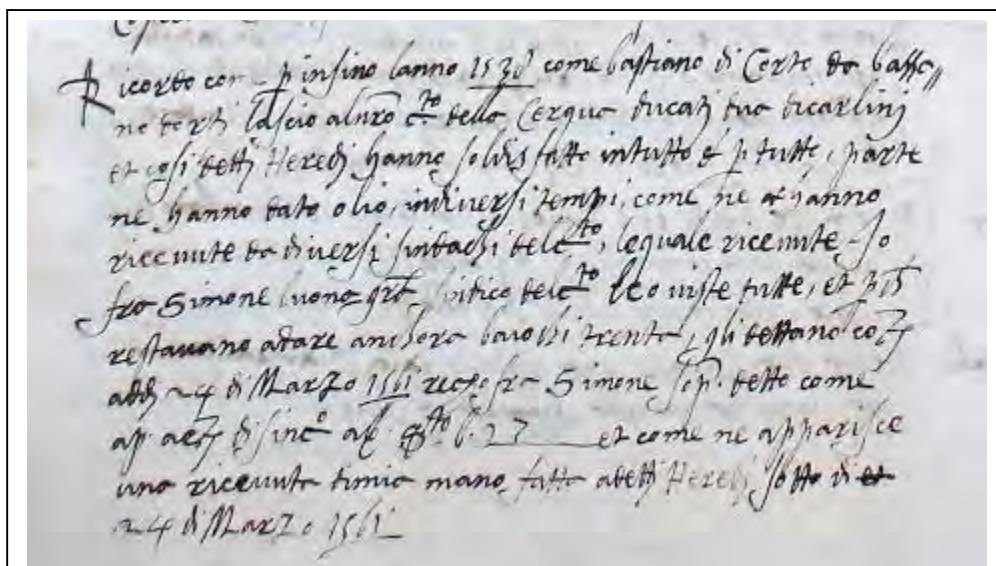 Ricordo com p infino lanno 1538 come bastiano di Corto da bassa,,
no lascio alnro c.to della Cerqua ducati dua di carlini
et cosi detti Heredi hanno sodisfatto intutto é p tutto, parte
ne hanno dato olio, indiversi tempi, come ne hanno
riceuute da diversi sindachi del c.to, lequale riceuute Io
fra Simone sindico del c.to le o viste tutte, et
restavano adare anchora baiochi trenta, gli dettano
adi 24 di Marzo 1561 fra Simone sop. detto come
ap. 27 et come ne apparisce
una riceuuta di mia mano fatta a detti Heredi sotto di
24 di Marzo 1561